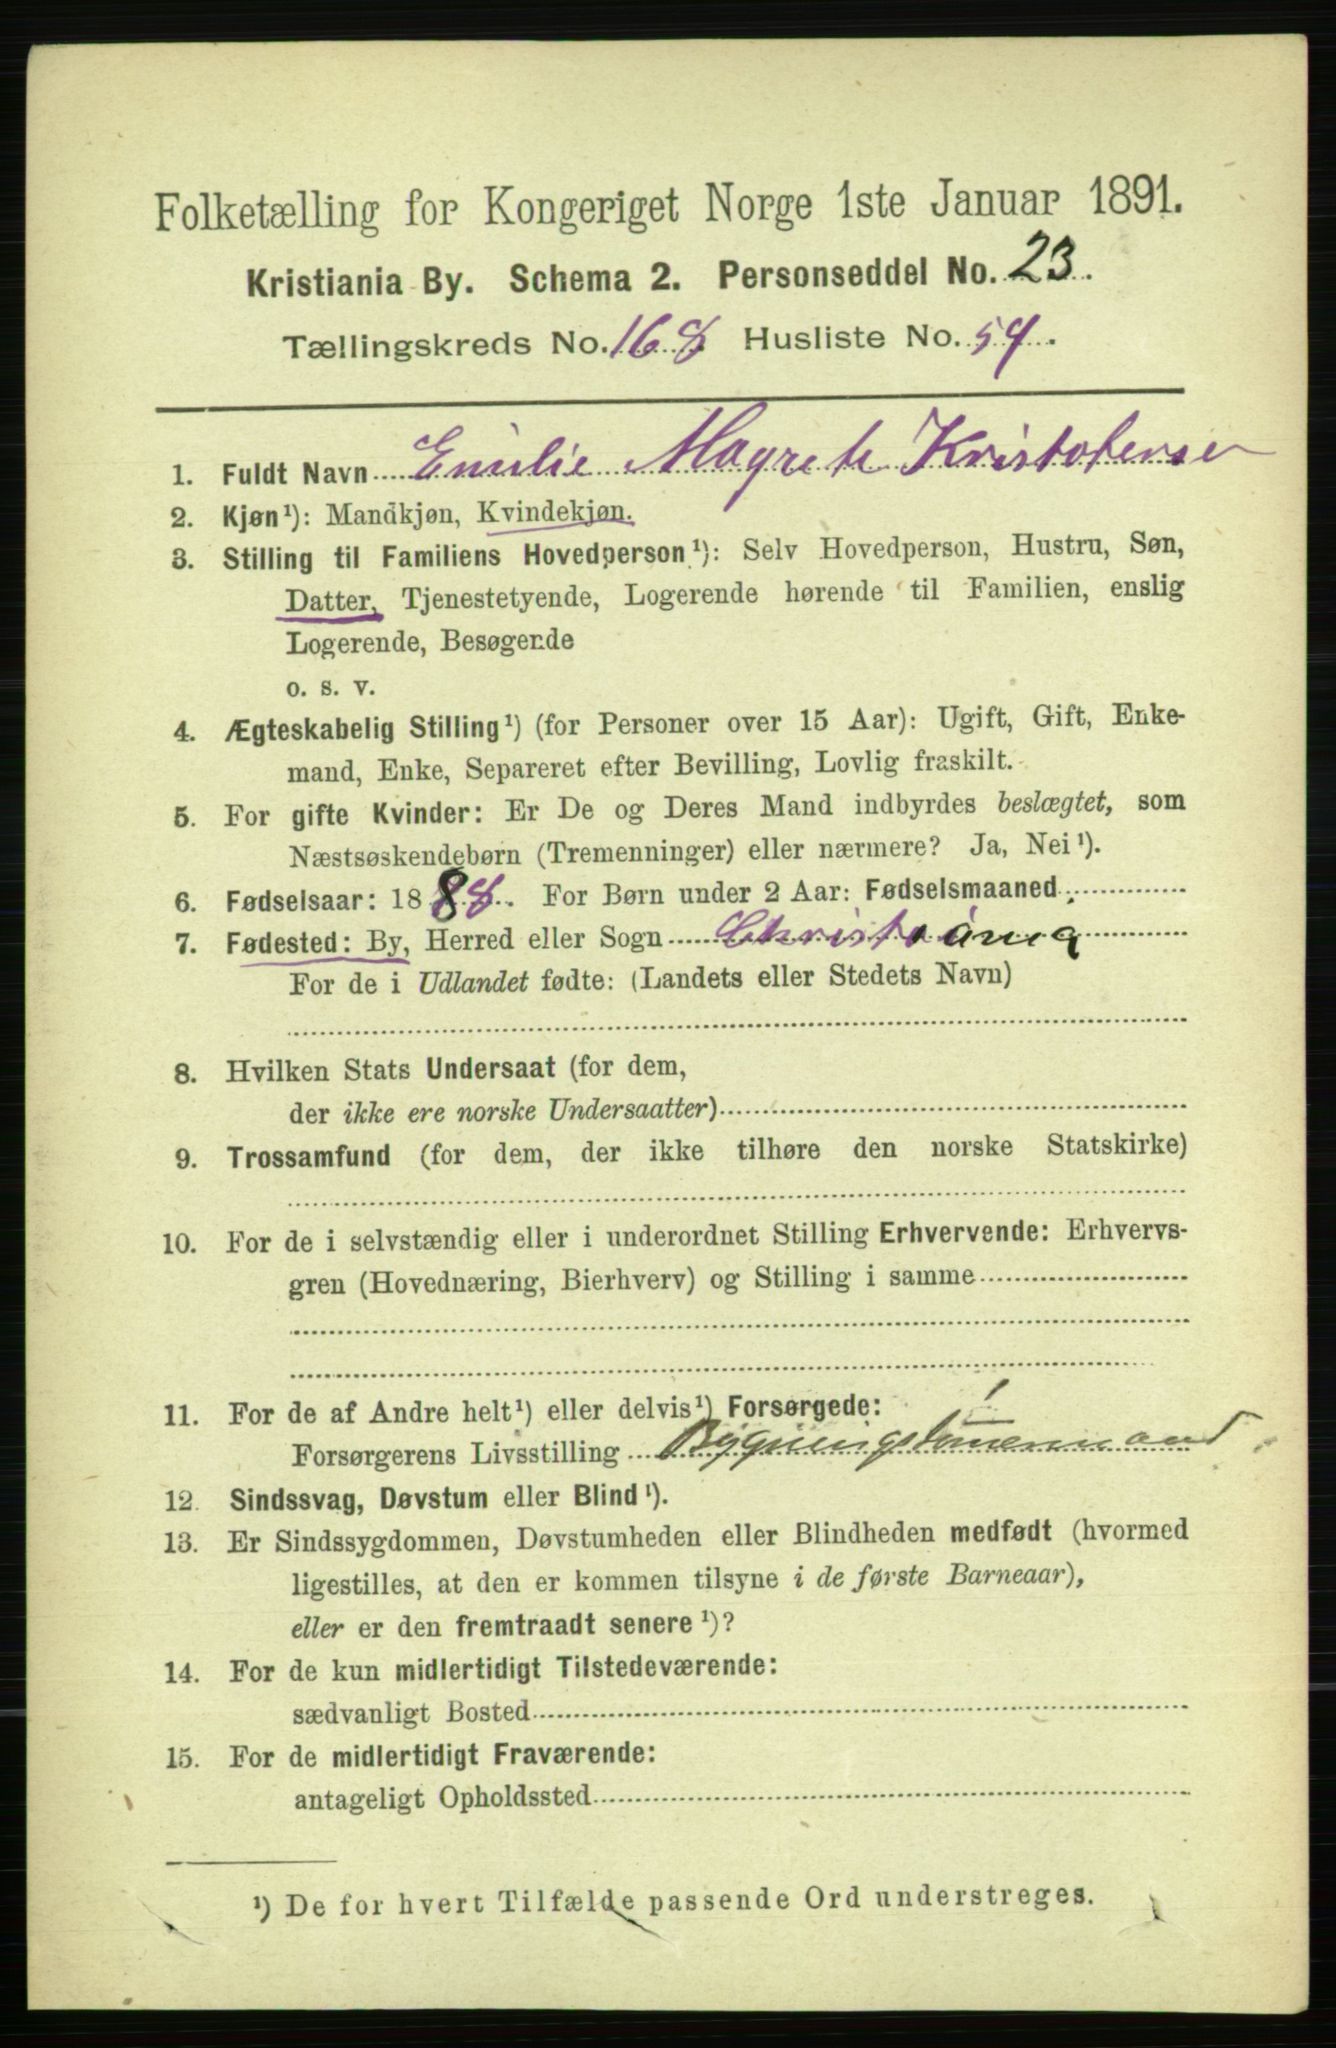 Folketælling for Kongeriget Norge 1ste Januar 1891.
Kristiania By. Schema 2. Personseddel No. 23.
Tællingskreds No. 168 Husliste No. 54.
1. Fuldt Navn Emilie Magrete Kristofersen
2. Kjøn¹): Mandkjøn, Kvindekjøn.
3. Stilling til Familiens Hovedperson¹): Selv Hovedperson, Hustru, Søn,
Datter, Tjenestetyende, Logerende hørende til Familien, enslig
Logerende, Besøgende
o. s. v.
4. Ægteskabelig Stilling¹) (for Personer over 15 Aar): Ugift, Gift, Enke-
mand, Enke, Separeret efter Bevilling, Lovlig fraskilt.
5. For gifte Kvinder: Er De og Deres Mand indbyrdes beslægtet, som
Næstsøskendebørn (Tremenninger) eller nærmere? Ja, Nei¹).
6. Fødselsaar: 1888. For Børn under 2 Aar: Fødselsmaaned:
7. Fødested: By, Herred eller Sogn Christiania
For de i Udlandet fødte: (Landets eller Stedets Navn)
8. Hvilken Stats Undersaat (for dem,
der ikke ere norske Undersaatter)
9. Trossamfund (for dem, der ikke tilhøre den norske Statskirke)
10. For de i selvstændig eller i underordnet Stilling Erhvervende: Erhvervs-
gren (Hovednæring, Bierhverv) og Stilling i samme
11. For de af Andre helt¹) eller delvis¹) Forsørgede:
Forsørgerens Livsstilling Bygningstømermand
12. Sindssvag, Døvstum eller Blind¹).
13. Er Sindssygdommen, Døvstumheden eller Blindheden medfødt (hvormed
ligestilles, at den er kommen tilsyne i de første Barneaar),
eller er den fremtraadt senere¹)?
14. For de kun midlertidigt Tilstedeværende:
sædvanligt Bosted
15. For de midlertidigt Fraværende:
antageligt Opholdssted
¹) De for hvert Tilfælde passende Ord understreges.